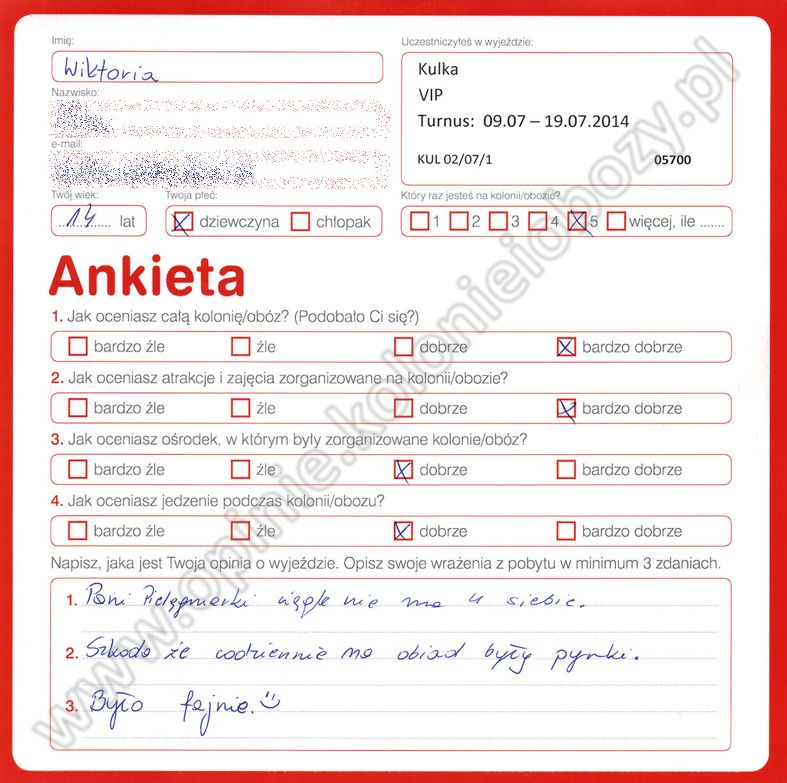 Imię:
Wiktoria
Nazwisko:
e-mail:
Twój wiek:
14 lat
Twoja płeć:
dziewczyna chłopak
Uczestniczyłeś w wyjeździe:
Kulka
VIP
Turnus: 09.07 – 19.07.2014
KUL 02/07/1 05700
Który raz jesteś na kolonii/obozie?
1 2 3 4 5 więcej, ile .......
Ankieta
1. Jak oceniasz całą kolonię/obóz? (Podobało Ci się?)
bardzo źle źle dobrze bardzo dobrze
2. Jak oceniasz atrakcje i zajęcia zorganizowane na kolonii/obozie?
bardzo źle źle dobrze bardzo dobrze
3. Jak oceniasz ośrodek, w którym były zorganizowane kolonie/obóz?
bardzo źle źle dobrze bardzo dobrze
4. Jak oceniasz jedzenie podczas kolonii/obozu?
bardzo źle źle dobrze bardzo dobrze
Napisz, jaka jest Twoja opinia o wyjeździe. Opisz swoje wrażenia z pobytu w minimum 3 zdaniach.
1. Pani Pielęgniarki ciągle nie ma u siebie.
2. Szkoda że codziennie na obiad były pyrki.
3. Było fajnie.
www.opinie.kolonieiobozy.pl